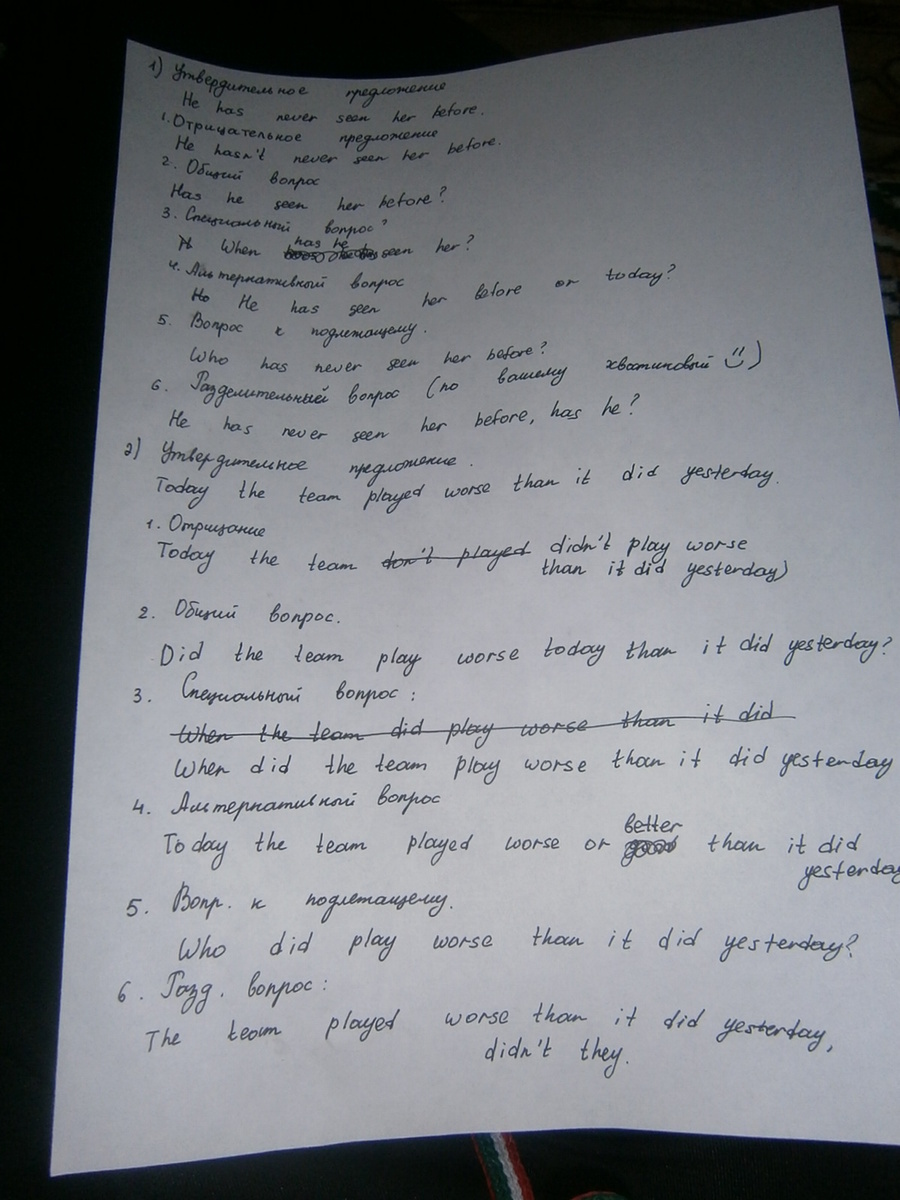 1) Утвердительное предложение
He has never seen her before.
1. Отрицательное предложение
He hasn't never seen her before.
2. Общий вопрос
Has he seen her before?
3. Специальный вопрос?
When has he seen her?
4. Альтернативный вопрос
He has seen her before or today?
5. Вопрос к подлежащему.
Who has never seen her before?
6. Разделительный вопрос (по вашему хвостиковый)
He has never seen her before, has he?
2) Утвердительное предложение.
Today the team played worse than it did yesterday.
1. Отрицание
Today the team don't played didn't play worse
than it did yesterday)
2. Общий вопрос.
Did the team play worse today than it did yesterday?
3. Специальный вопрос:
When the team did play worse than it did
When did the team play worse than it did yesterday
4. Альтернативный вопрос
better
Today the team played worse or than it did
yesterday
5. Вопр. к подлежащему.
Who did play worse than it did yesterday?
6. Разд. вопрос:
The team played worse than it did yesterday,
didn't they.